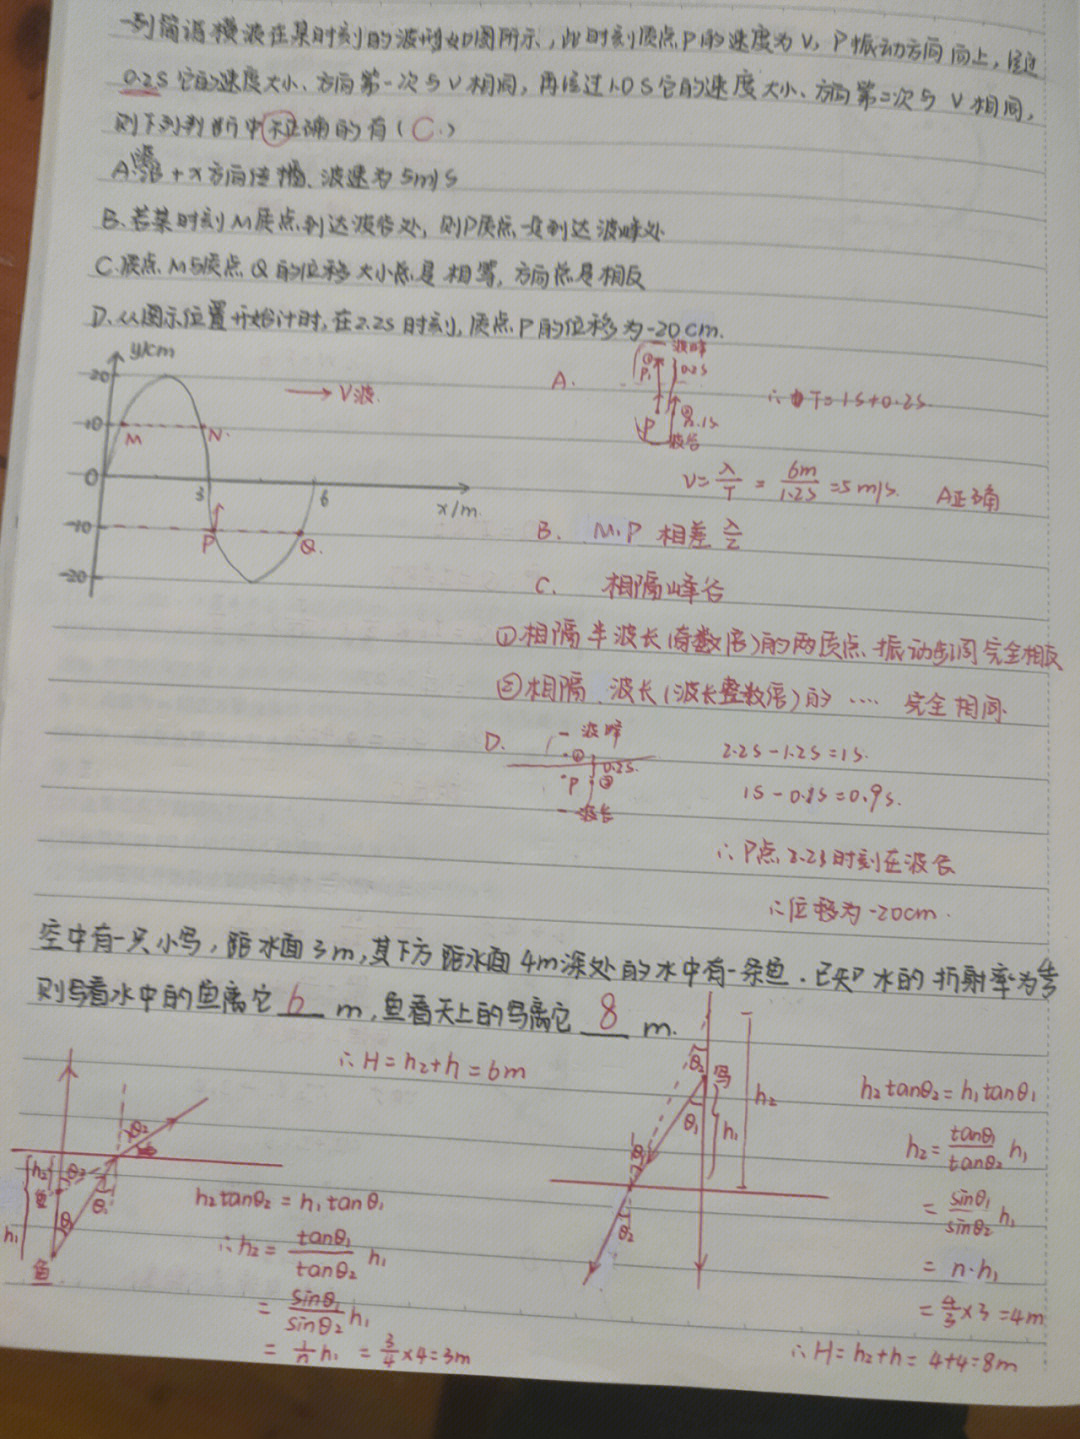 一列简谐横波在某时刻的波形如图所示,此时刻质点P的速度为V,P振动方向向上,经过
0.2S它的速度大小、方向第一次与V相同,再经过1.0S它的速度大小、方向第二次与V相同,
则下列判断中不正确的有(C.)
A.波沿+x方向传播、波速为5m/s
B.若某时刻M质点到达波谷处,则P质点一定到达波峰处
C.质点M与质点Q的位移大小总是相等,方向总是相反
D.从图示位置开始计时,在2.2S时刻,质点P的位移为-20cm.
y/cm
20
10
0
-10
-20
M
N.
P
Q.
3
6
x/m
→V波.
A.
波峰
①
P₁
0.2S
P
②
0.1s
波谷
∴T=1S+0.2S
V=λ/T=6m/1.2S=5m/s. A正确
B. M、P 相差λ/2
C. 相隔峰谷
①相隔半波长(奇数倍)的两质点振动步调完全相反
②相隔 波长(波长整数倍)的 …… 完全相同.
D.
波峰
①
0.2S.
P
②
2.2S-1.2S=1S.
1S-0.1S=0.9S.
∴P点2.2S时刻在波谷
∴位移为-20cm.
空中有一只小鸟,距水面3m,其下方距水面4m深处的水中有一条鱼.已知水的折射率为4/3
则鸟看水中的鱼离它 6 m,鱼看天上的鸟离它 8 m.
∴H=h₂+h=6m
θ₂
h₂
鱼
θ₂
θ₁
θ₁
h₁
鱼
h₂tanθ₂=h₁tanθ₁
∴h₂=tanθ₁/tanθ₂ h₁
=sinθ₁/sinθ₂ h₁
=1/n h₁=3/4×4=3m
θ₂
鸟
θ₁
h₁
h₂
θ₁
θ₂
h₂tanθ₂=h₁tanθ₁
h₂=tanθ₁/tanθ₂ h₁
=sinθ₁/sinθ₂ h₁
=n·h₁
=4/3×3=4m
∴H=h₂+h=4+4=8m